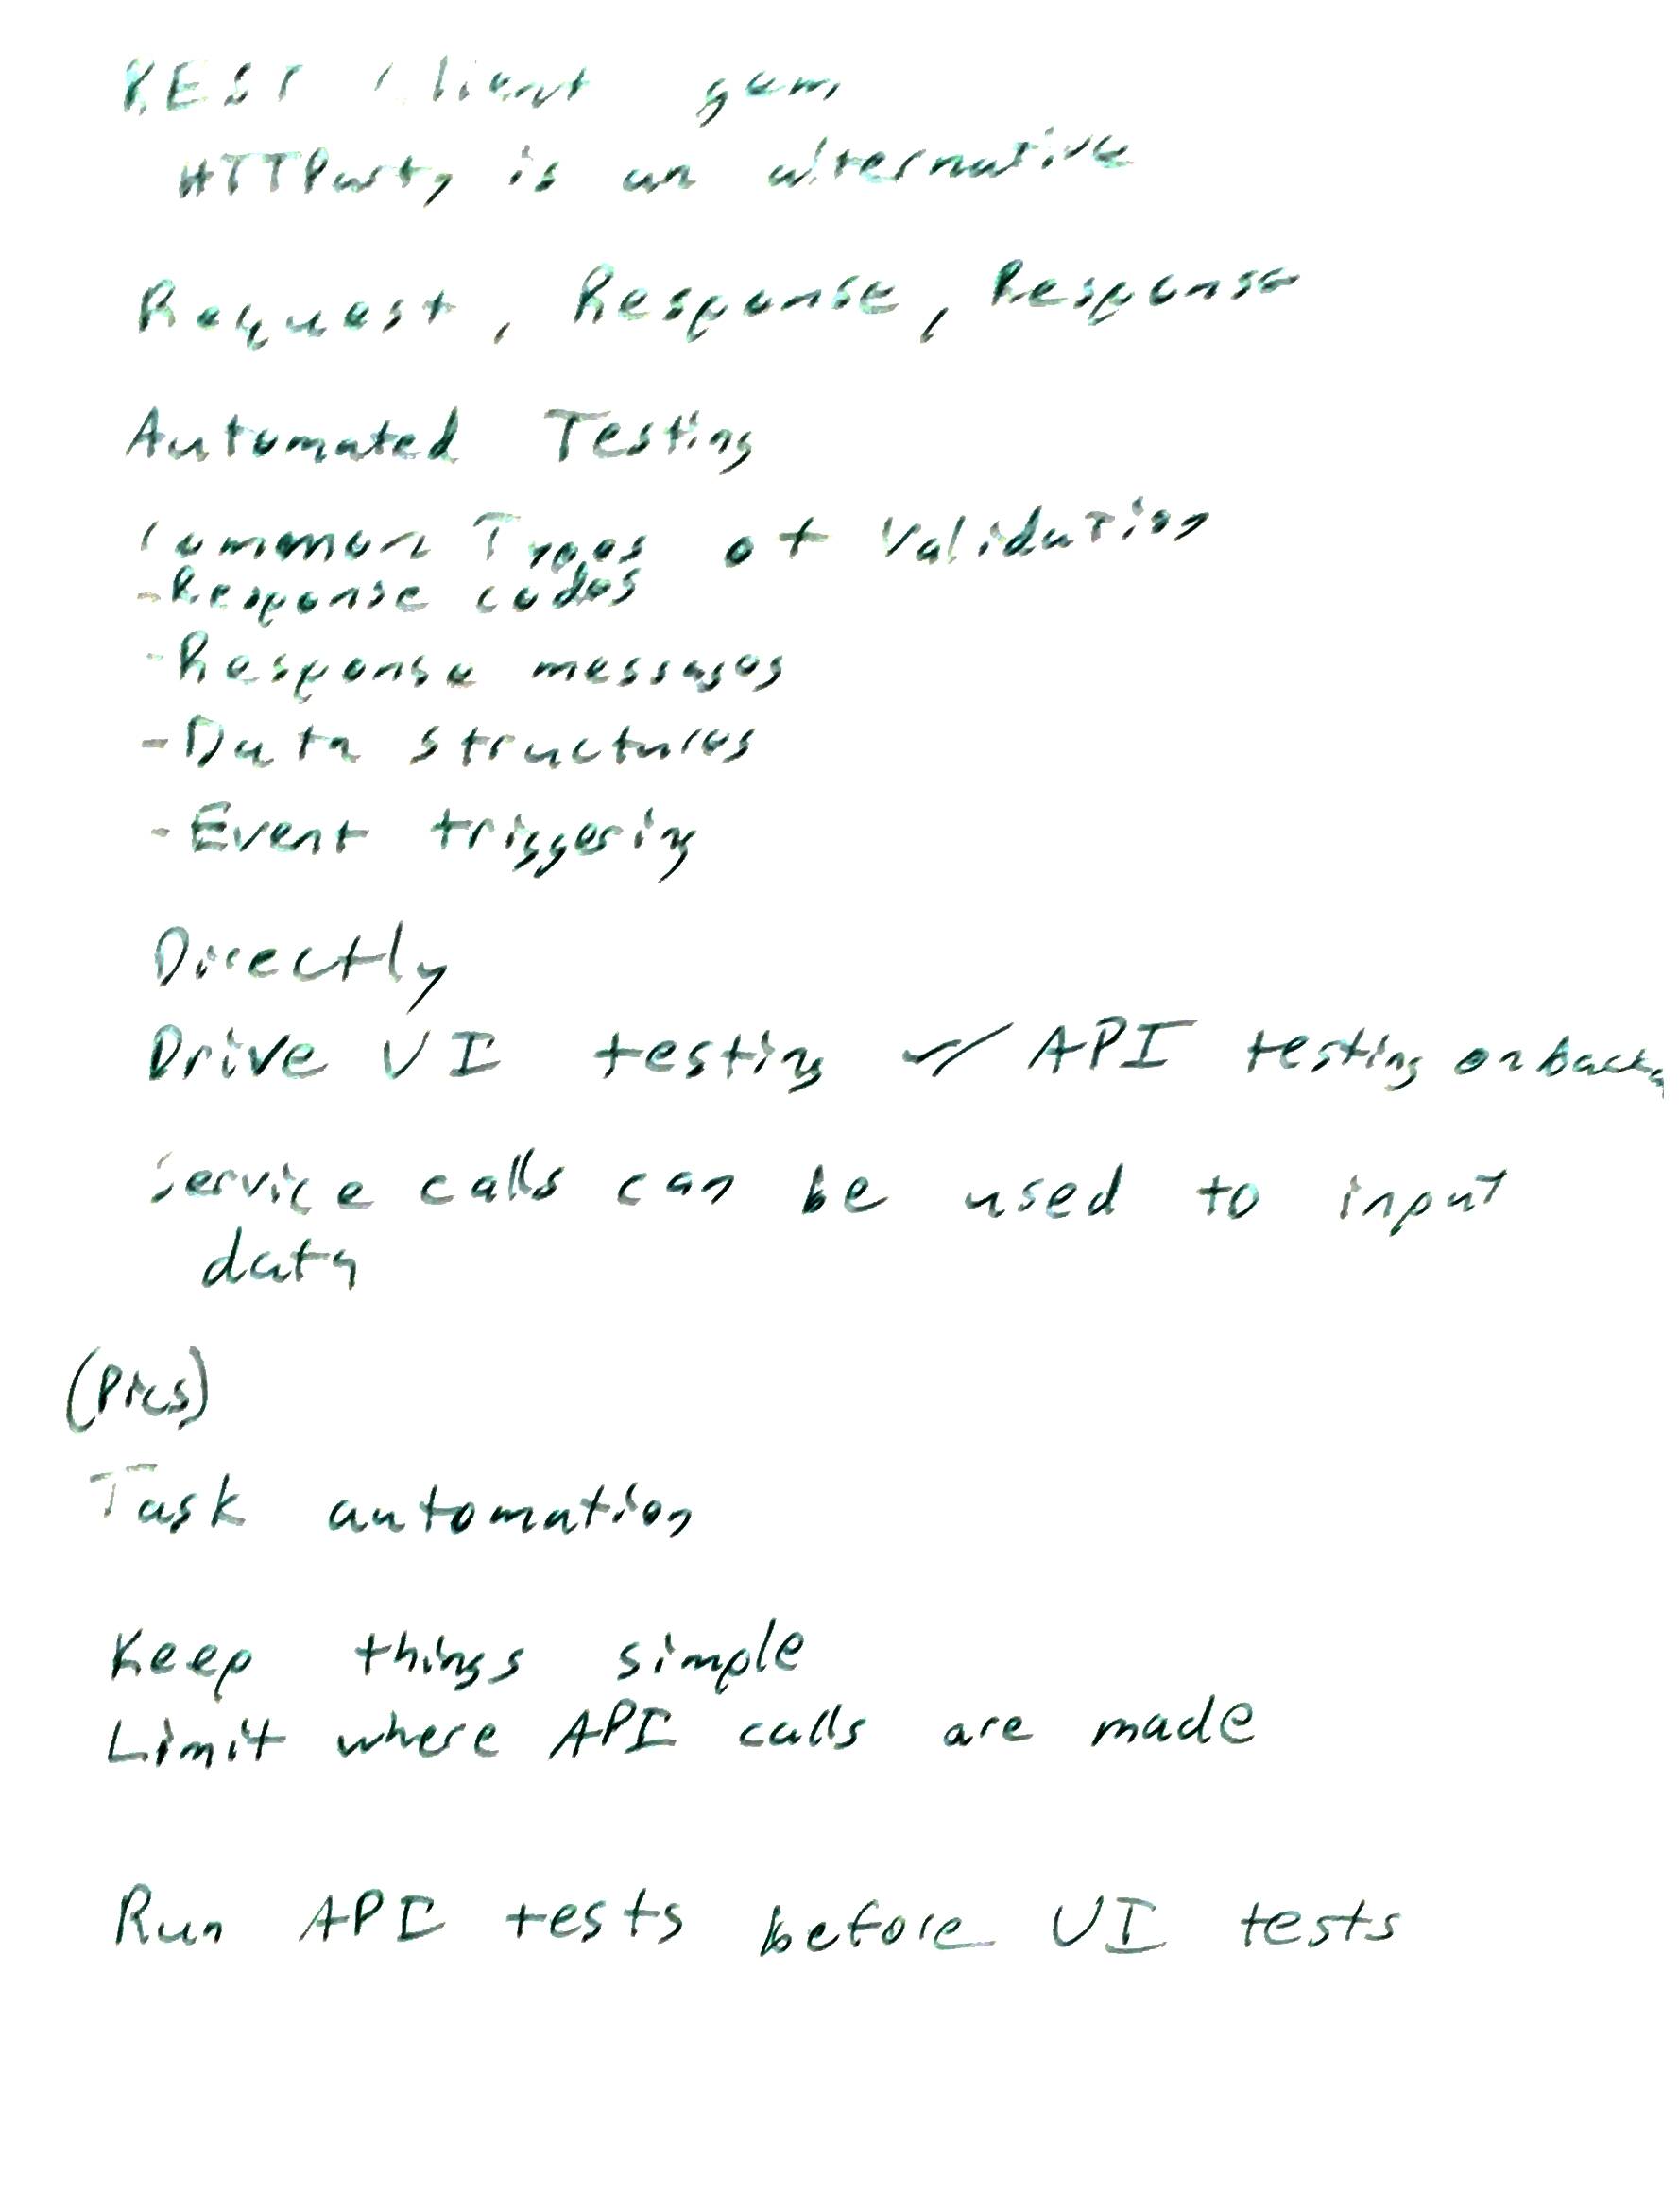 REST Client gem
HTTParty is an alternative
Request, Response, Response
Automated Testing
Common Types of Validation
-Response codes
-Response messages
-Data structures
-Event triggering
Directly
Drive UI testing w/ API testing on
Service calls can be used to input
data
(Pics)
Task automation
Keep things simple
Limit where API calls are made
Run API tests before UI tests